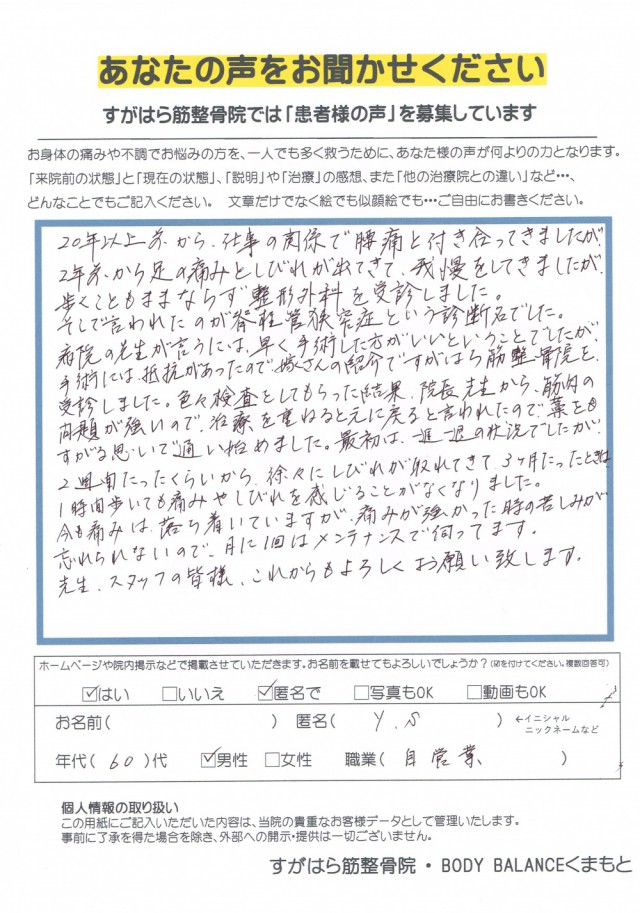 あなたの声をお聞かせください
すがはら筋整骨院では「患者様の声」を募集しています
お身体の痛みや不調でお悩みの方を、一人でも多く救うために、あなた様の声が何よりの力となります。
「来院前の状態」と「現在の状態」、「説明」や「治療」の感想、また「他の治療院との違い」など…、
どんなことでもご記入ください。 文章だけでなく絵でも似顔絵でも…ご自由にお書きください。
20年以上前から、仕事の関係で腰痛と付き合ってきましたが
2年前から足の痛みとしびれが出てきて、我慢をしてきましたが、
歩くこともままならず整形外科を受診しました。
そこで言われたのが脊柱管狭窄症という診断名でした。
病院の先生が言うには、早く手術した方がいいということでしたが、
手術には抵抗があったので嫁さんの紹介ですがはら筋整骨院を、
受診しました。色々検査をしてもらった結果、院長先生から、筋肉の
問題が強いので、治療を重ねると元に戻ると言われたので藁をも
すがる思いで通い始めました。最初は、一進一退の状況でしたが、
2週間たったくらいから、徐々にしびれが収れてきて、3ヶ月たったときは
1時間歩いても痛みやしびれを感じることがなくなりました。
今も痛みは、落ち着いていますが、痛みが強かった時の苦しみが
忘れられないので、月に1回はメンテナンスで伺ってます。
先生、スタッフの皆様、これからもよろしくお願い致します。
ホームページや院内掲示などで掲載させていただきます。お名前を載せてもよろしいでしょうか?(☑を付けてください。複数回答可)
☑はい □いいえ ☑匿名で □写真もOK □動画もOK
お名前( ) 匿名( Y.S ) ←イニシャル
ニックネームなど
年代( 60 )代 ☑男性 □女性 職業( 自営業 )
個人情報の取り扱い
この用紙にご記入いただいた内容は、当院の貴重なお客様データとして管理いたします。
事前に了承を得た場合を除き、外部への開示・提供は一切ございません。
すがはら筋整骨院・BODY BALANCEくまもと